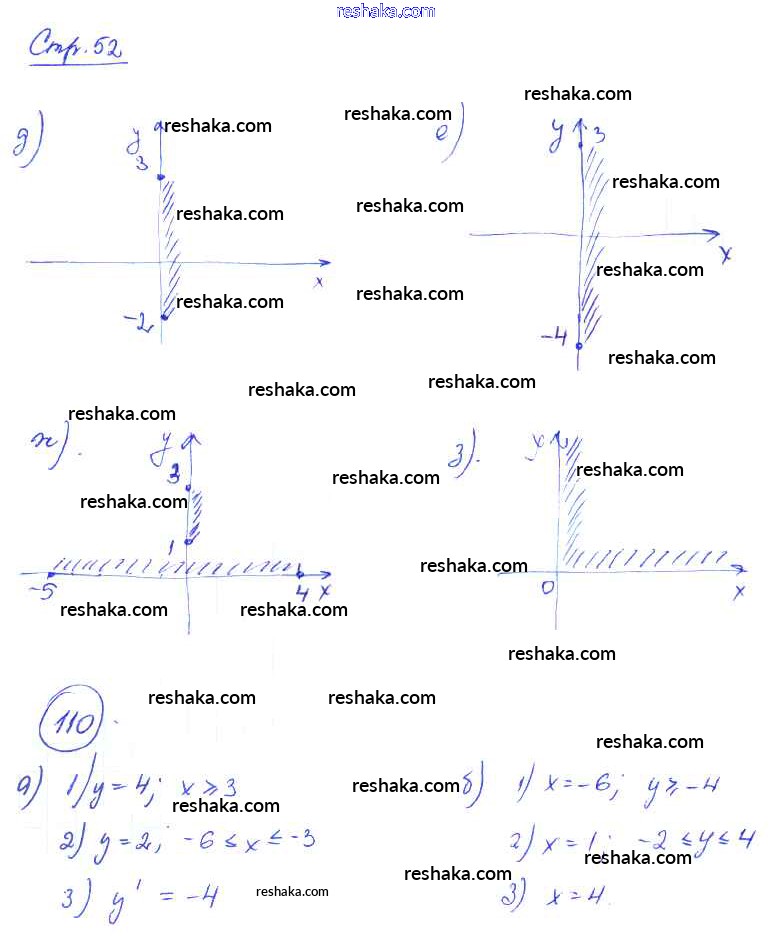 reshaka.com
Стр. 52
reshaka.com
д) y 3 reshaka.com reshaka.com е) y 3
reshaka.com reshaka.com reshaka.com
x x
reshaka.com
-2 reshaka.com reshaka.com
-4 reshaka.com
reshaka.com reshaka.com
reshaka.com
ж). y з). y
3 reshaka.com reshaka.com
reshaka.com
1
reshaka.com
-5 4 x 0 x
reshaka.com reshaka.com
reshaka.com
reshaka.com reshaka.com
110
reshaka.com
а) 1) y = 4; x ≥ 3 reshaka.com б) 1) x = -6; y ≥ -4
reshaka.com
2) y = 2; -6 ≤ x ≤ -3 2) x = 1; -2 ≤ y ≤ 4
reshaka.com
reshaka.com
3) y' = -4 reshaka.com 3) x = 4.